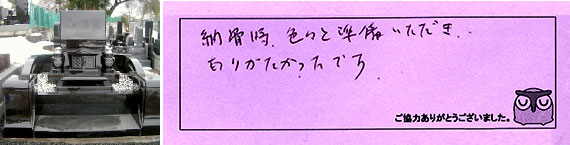 納骨時、色々と準備いただき、
ありがたかったです
ご協力ありがとうございました。